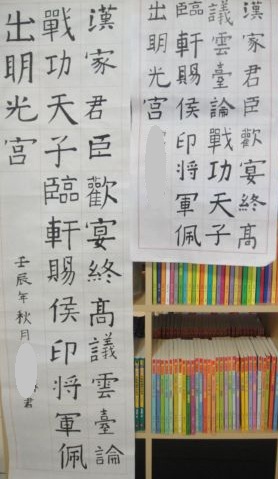 漢家君臣歡宴終髙
議雲臺論戰功天子
臨軒賜侯印將軍佩
出明光宮
漢家君臣歡宴終髙議雲臺論
戰功天子臨軒賜侯印將軍佩
出明光宮
壬辰年秋月
君